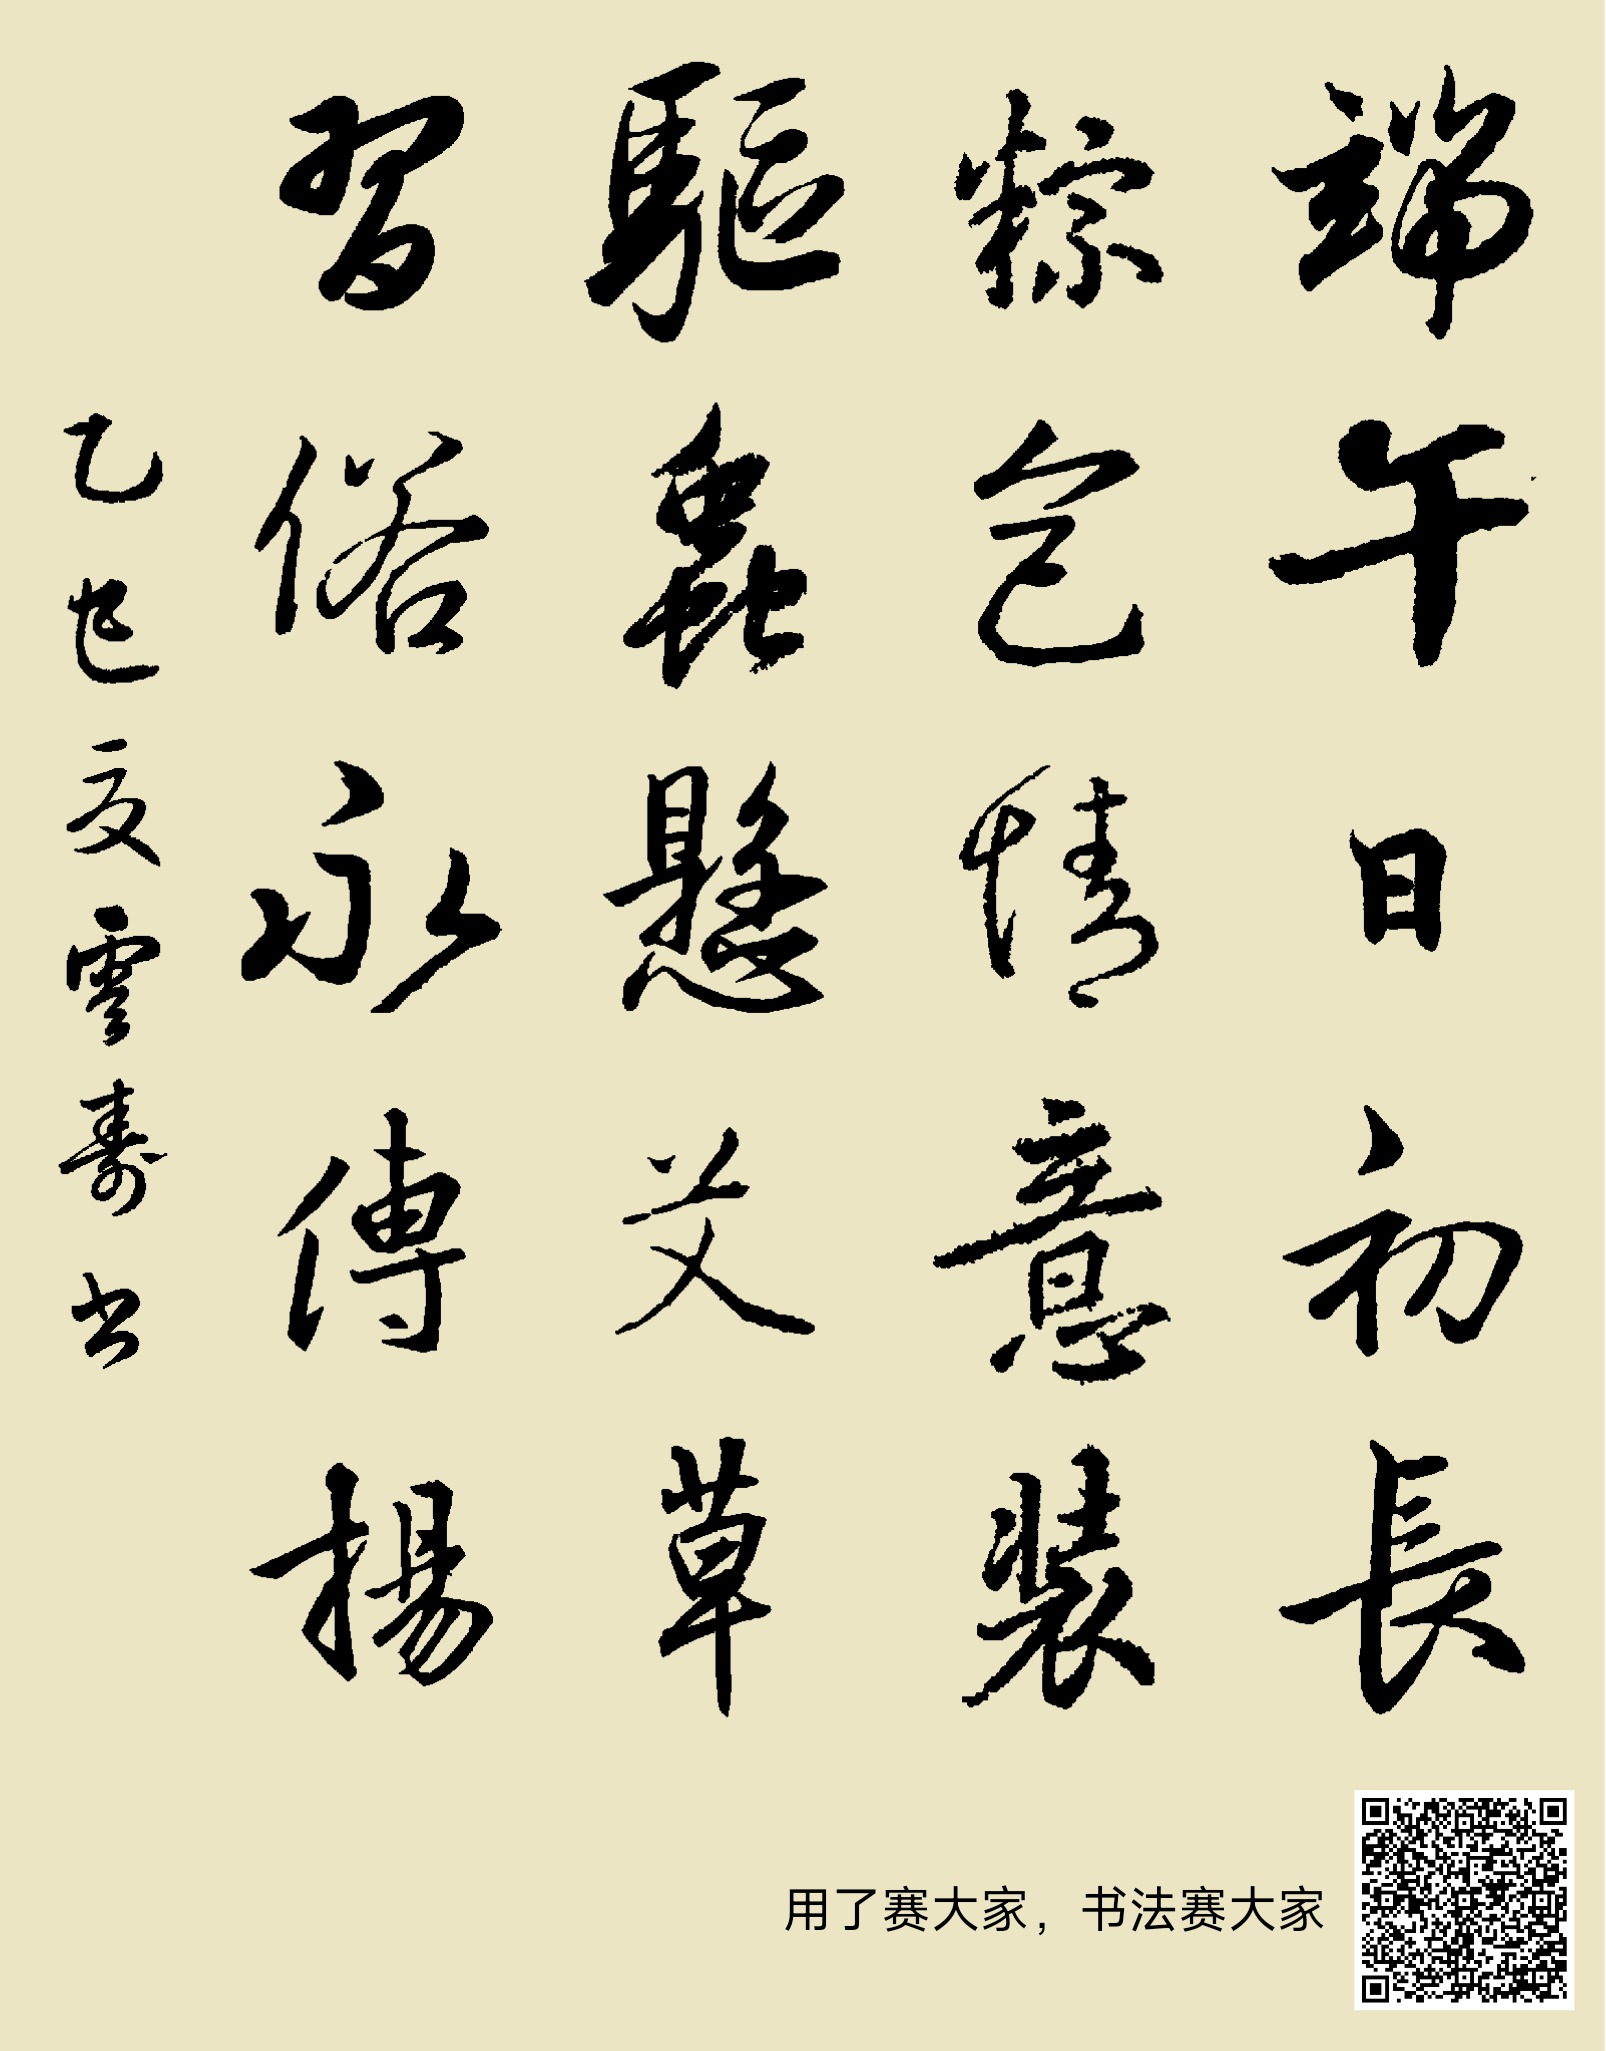 端午日初長
粽包情意裝
驅蟲懸艾草
習俗永傳揚
乙巳夏雲壽书
用了赛大家，书法赛大家